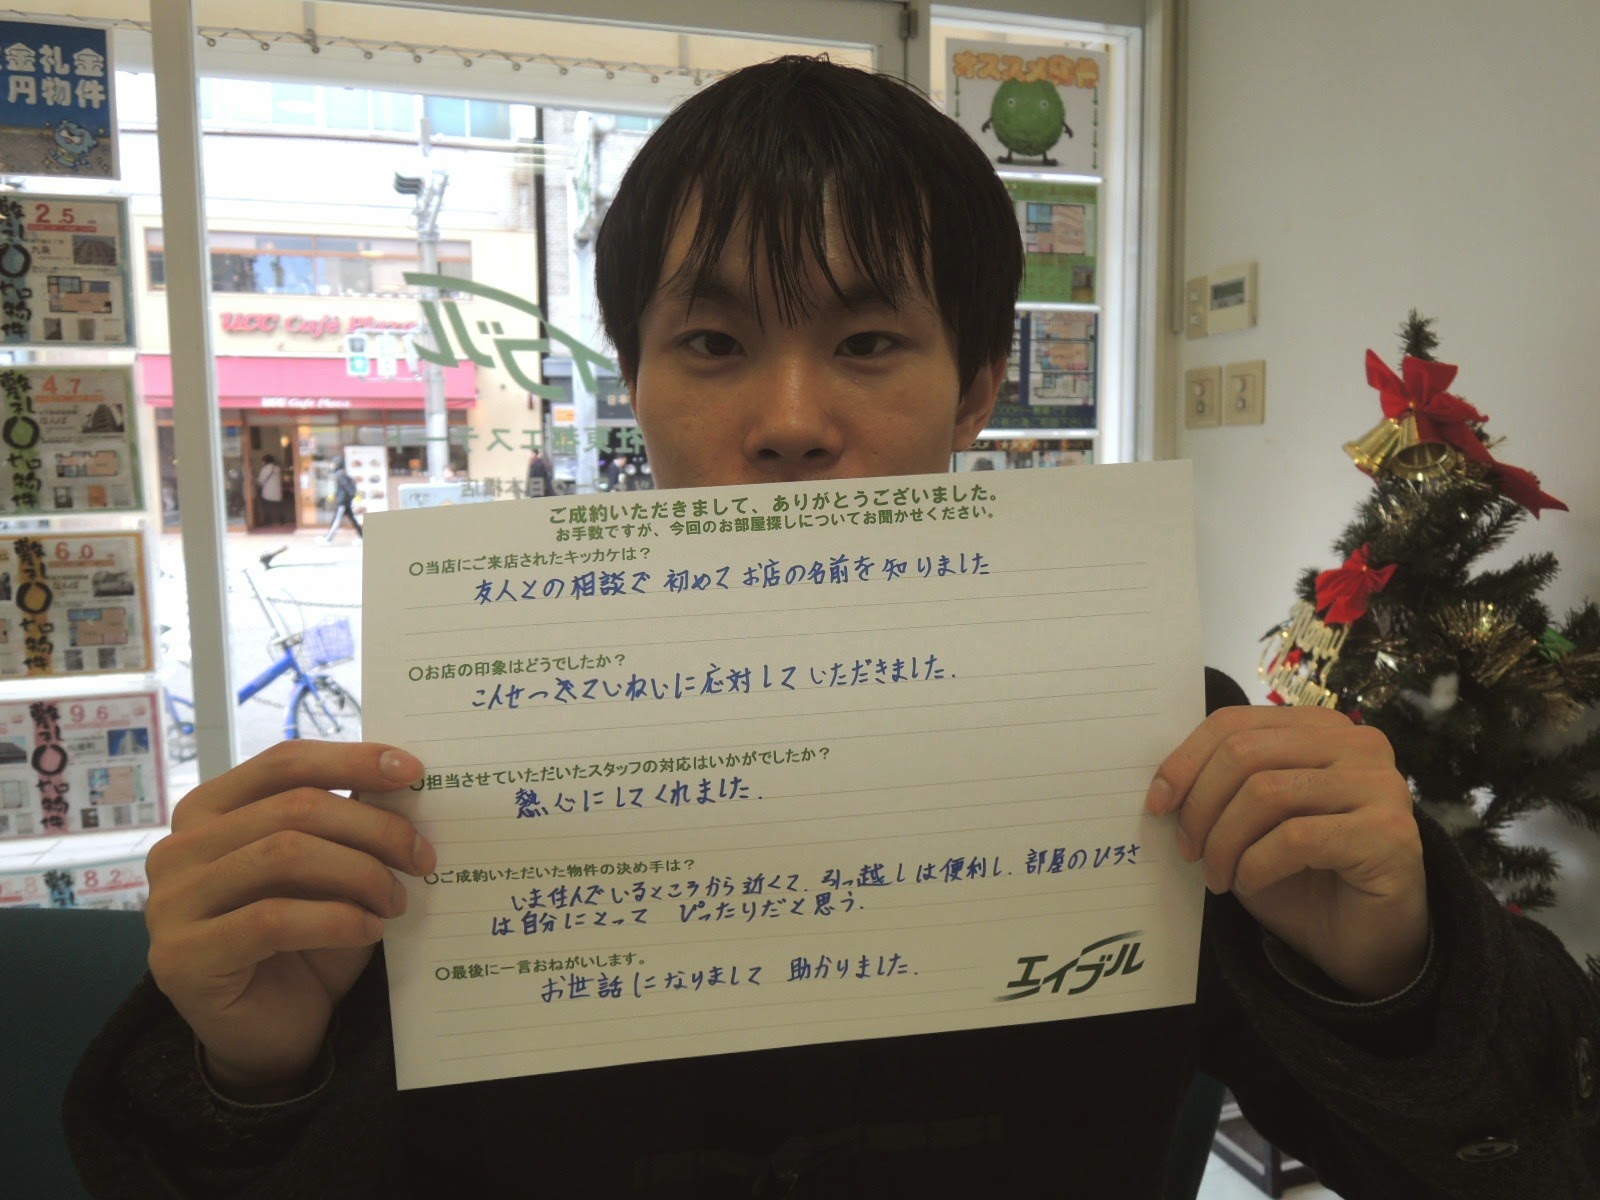 金礼金
円物件
オススメ物件
2.5
九条
敷礼0ヤロ物件
4.7
なんば
敷礼0ヤロ物件
6.0
なんば
敷礼0ヤロ物件
9.6
敷礼0ヤロ物件
8.2
UCC Café Plaza
UCC Cafe Plaza
エイブル
社東都エステート
日本橋店
Merry Christmas
ご成約いただきまして、ありがとうございました。
お手数ですが、今回のお部屋探しについてお聞かせください。
○当店にご来店されたキッカケは？
友人との相談で 初めて お店の名前を知りました
○お店の印象はどうでしたか？
こんせつていねいに応対して いただきました.
○担当させていただいたスタッフの対応はいかがでしたか？
熱心にしてくれました.
○ご成約いただいた物件の決め手は？
いま住んでいるところから近くて. 引っ越しは便利し. 部屋のひろさ
は自分にとって ぴったりだと思う.
○最後に一言おねがいします。
お世話になりまして 助かりました.
エイブル